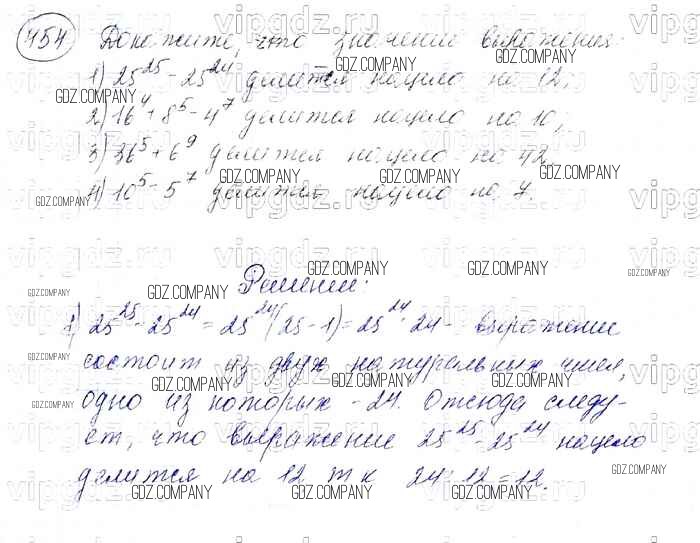 454 Докажите, что значение выражения:
1) 25^25 - 25^24 делится нацело на 12;
2) 16^4 + 8^5 - 4^7 делится нацело на 10;
3) 36^5 + 6^9 делится нацело на 42
4) 10^5 - 5^7 делится нацело на 7.
Решение:
1) 25^25 - 25^24 = 25^24 (25 - 1) = 25^24 · 24 - выражение
состоит из двух натуральных чисел,
одно из которых - 24. Отсюда следу-
ет, что выражение 25^25 - 25^24 нацело
делится на 12 т к 24 : 12 = 12.
vipgdz.ru
GDZ.COMPANY